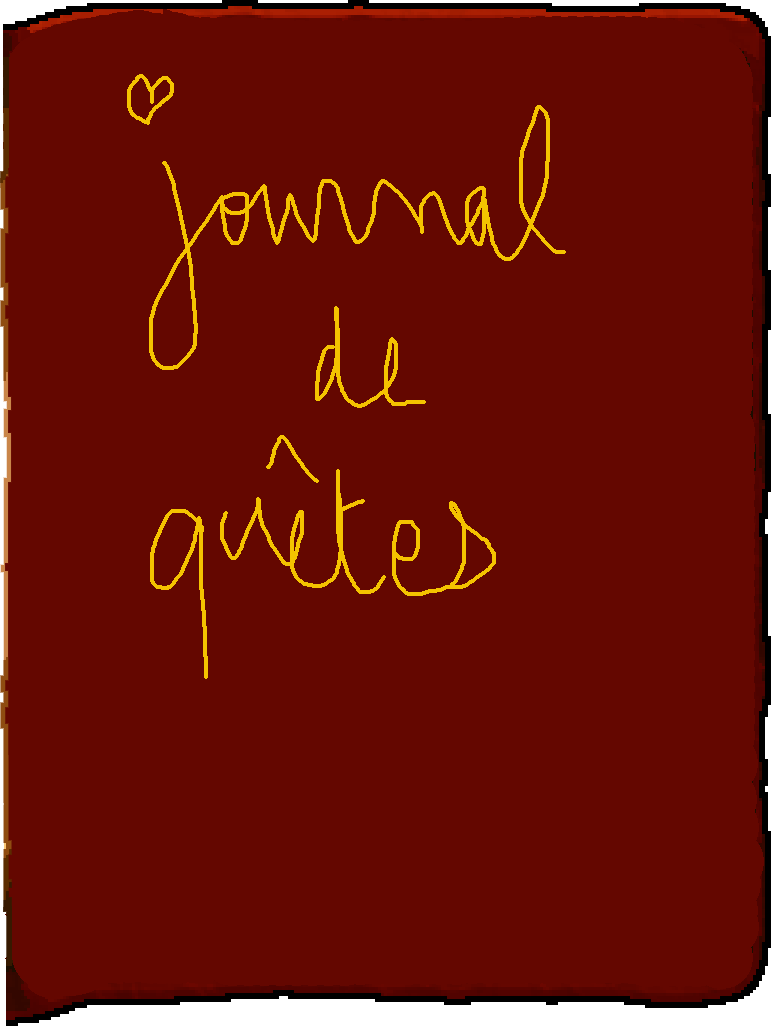 journal
de
quêtes